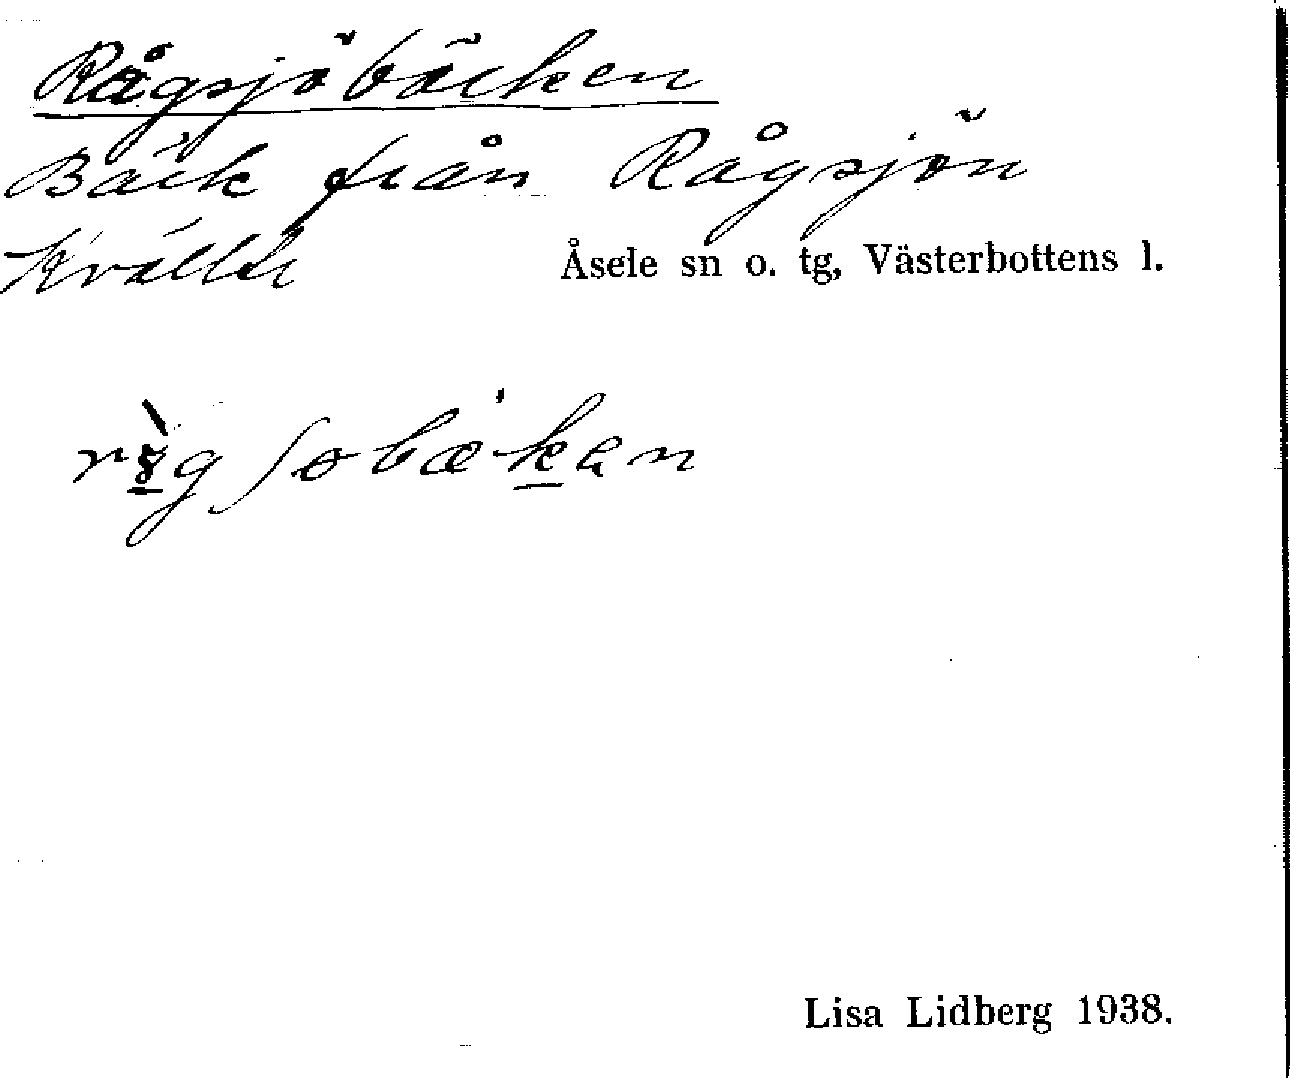 Rågsjöbäcken
Bäck från Rågsjön
Kväller
Åsele sn o. tg, Västerbottens l.
Lisa Lidberg 1938.